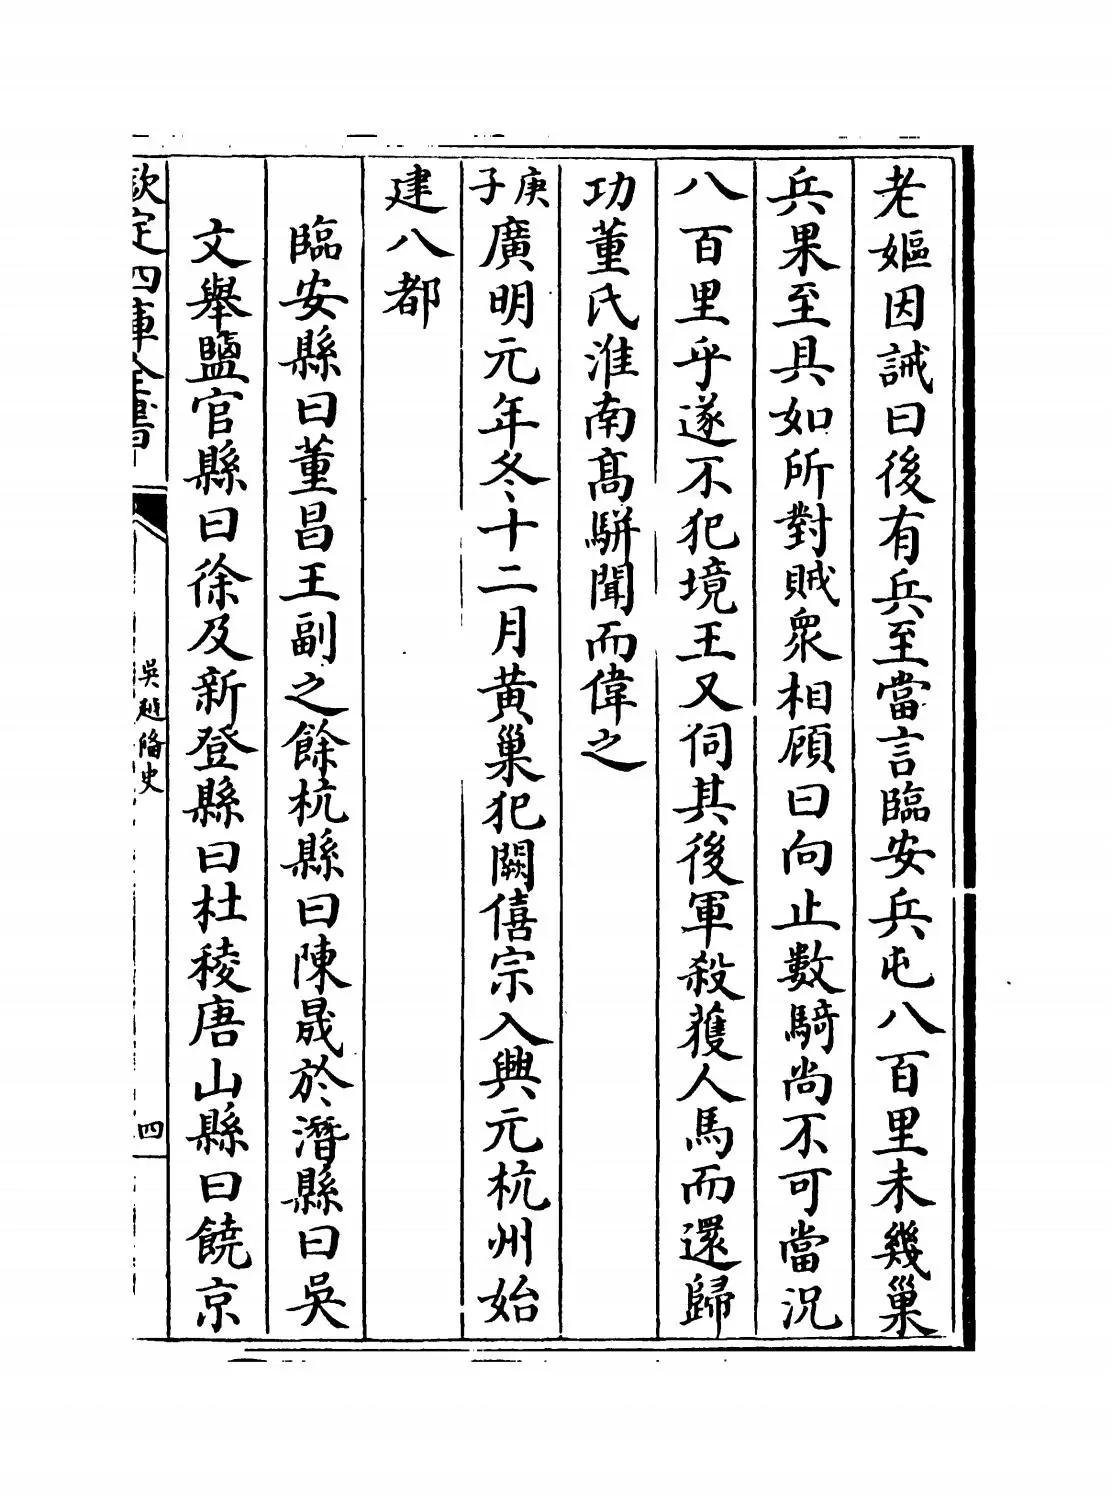 老嫗因誡曰後有兵至當言臨安兵屯八百里未幾巢
兵果至具如所對賊衆相顧曰向止數騎尚不可當況
八百里乎遂不犯境王又伺其後軍殺獲人馬而還歸
功董氏淮南髙駢聞而偉之
庚子廣明元年冬十二月黃巢犯闕僖宗入興元杭州始
建八都
臨安縣曰董昌王副之餘杭縣曰陳晟於潛縣曰吳
文舉鹽官縣曰徐及新登縣曰杜稜唐山縣曰饒京
欽定四庫全書
吳越備史
四